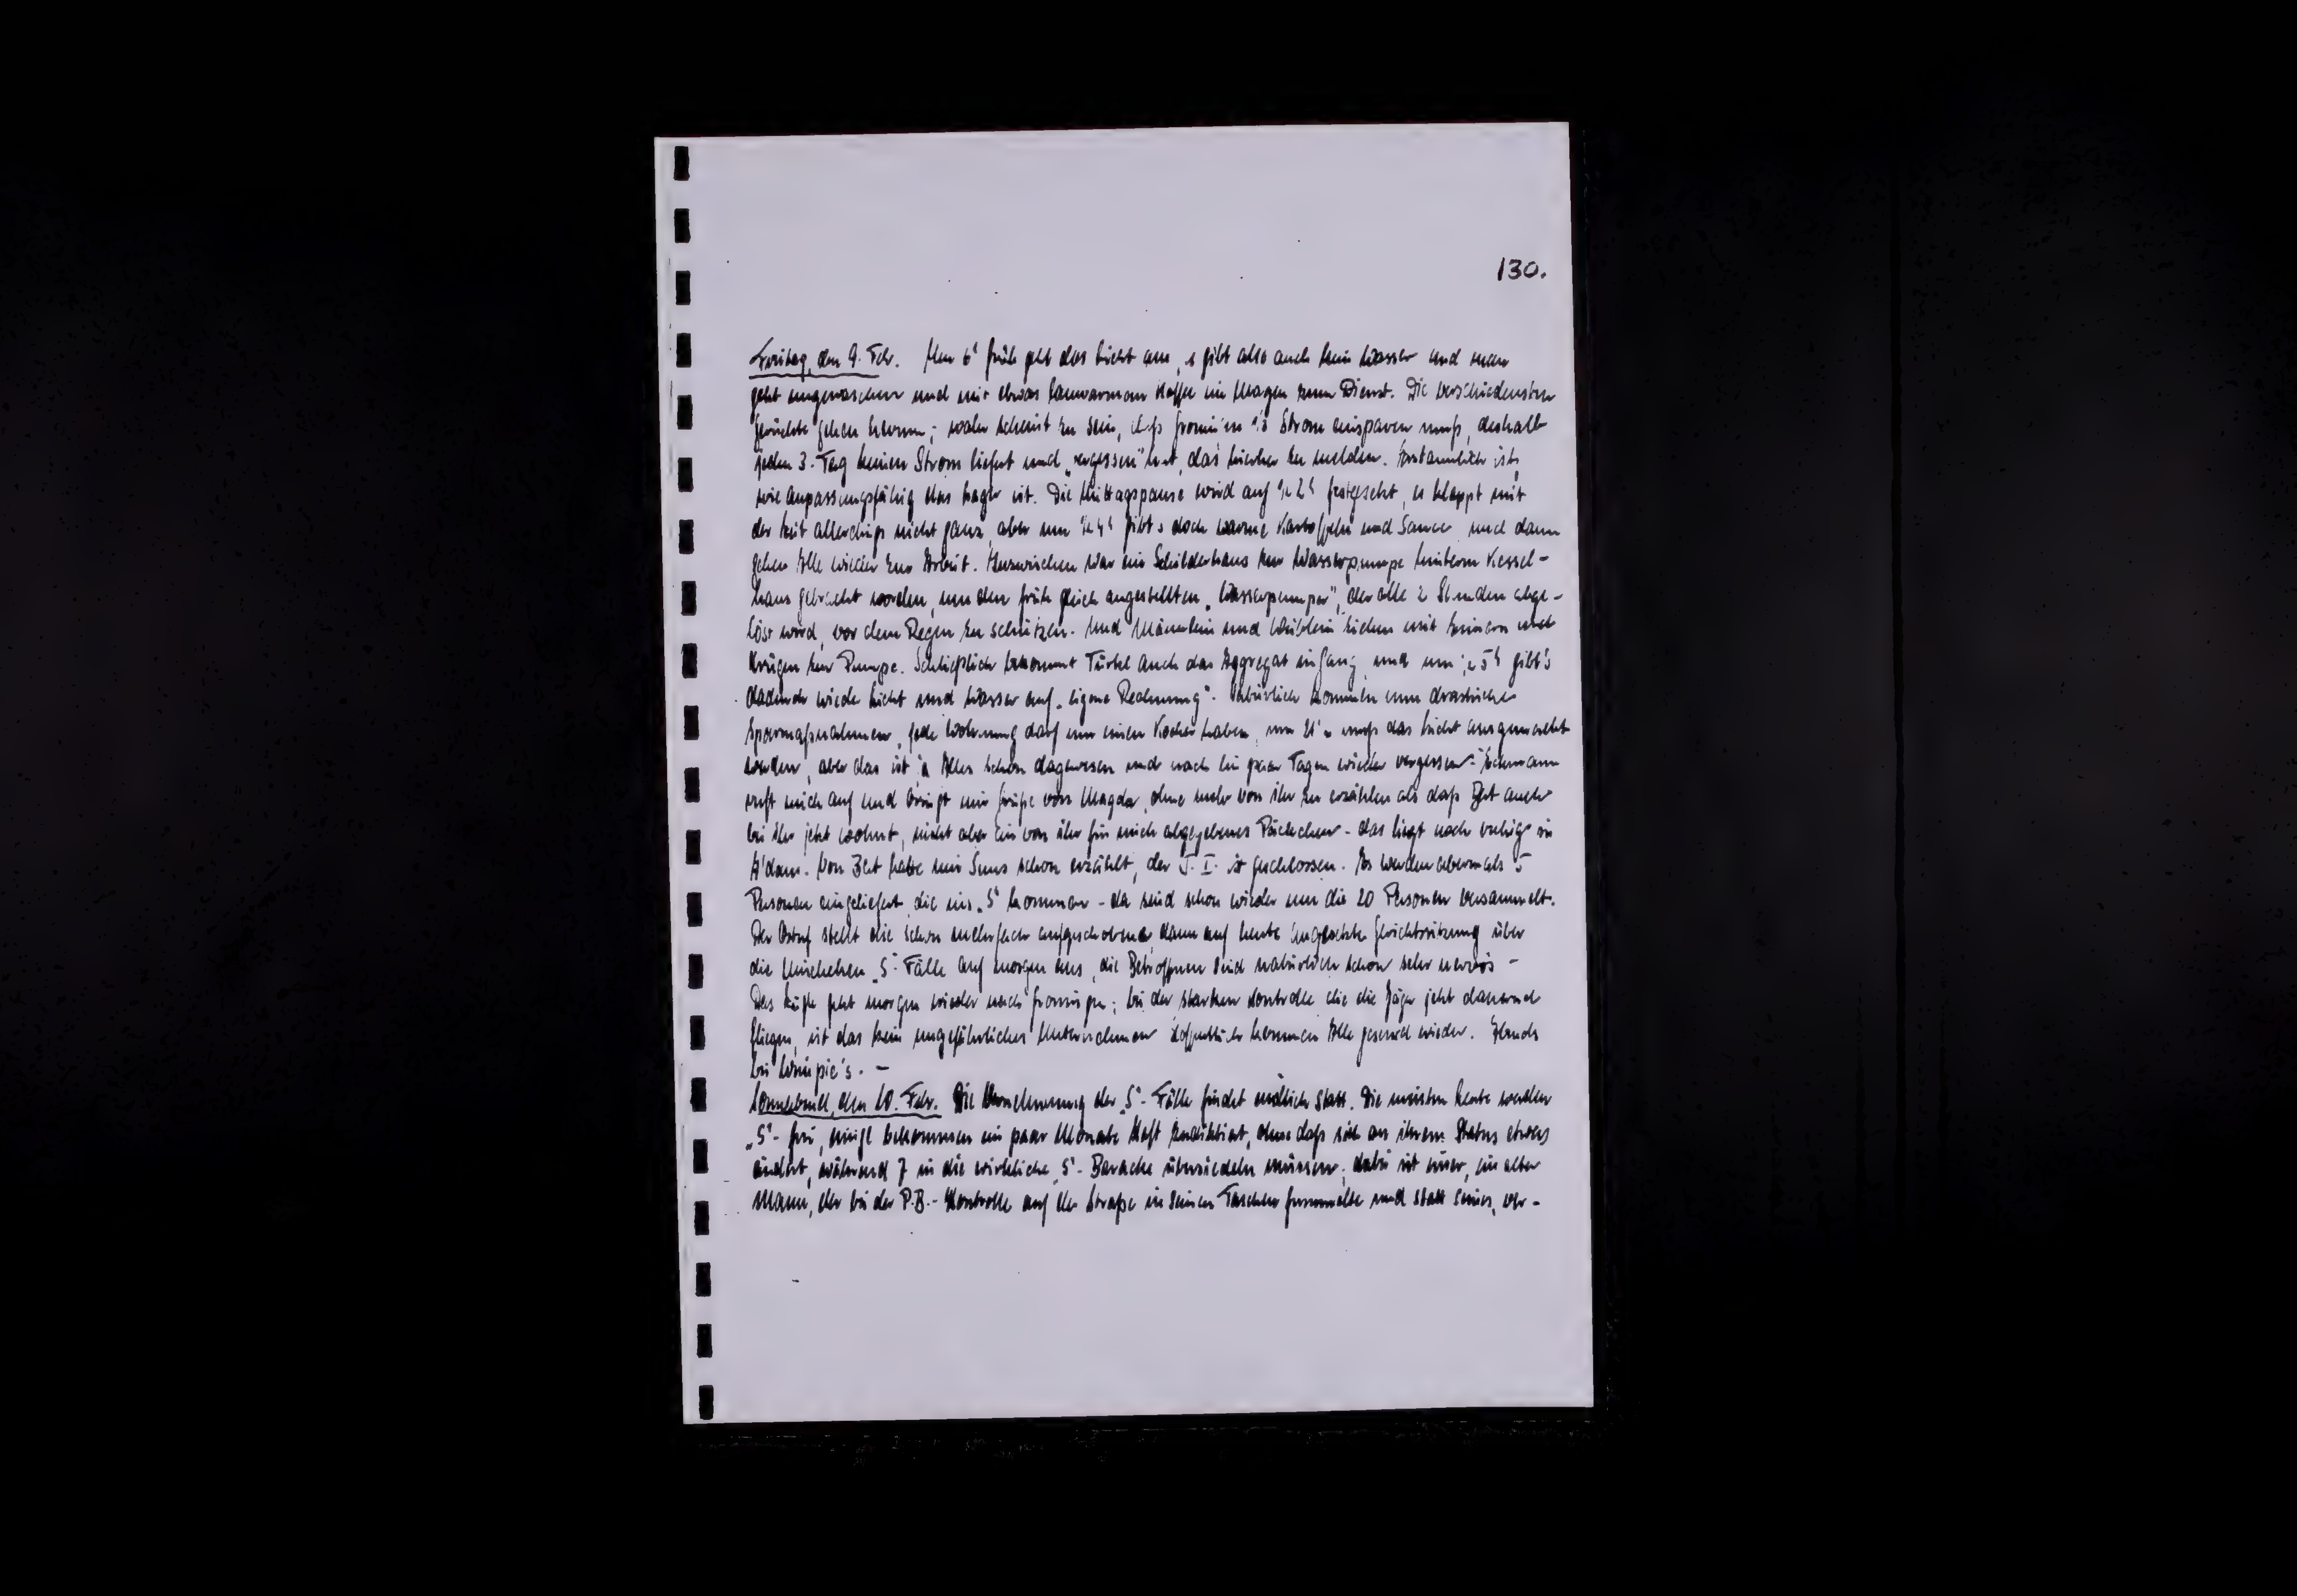 130.
Freitag, den 9. Febr. Um 6ʰ früh geht das Licht aus, es gibt also auch kein Wasser und man
geht ungewaschen und mit etwas lauwarmem Kaffee im Magen zum Dienst. Die verschiedensten
Gerüchte gehen herum; wahr scheint zu sein, daß Groningen 1/3 Strom einsparen muß, deshalb
jeden 3. Tag keinen Strom liefert und „vergessen" hat, das hierher zu melden. Erstaunlich ist,
wie anpassungsfähig das Lager ist. Die Mittagspause wird auf ½ 2ʰ festgesetzt, es klappt mit
der Zeit allerdings nicht ganz, aber um ¼ 4ʰ gibt's doch warme Kartoffeln und Sauce und dann
gehen Alle wieder zur Arbeit. Inzwischen war ein Schilderhaus zur Wasserpumpe hinterm Kessel-
haus gebracht worden, um den früh gleich angestellten „Wasserpumper", der alle 2 Stunden abge-
löst wird, vor dem Regen zu schützen. Und Männlein und Weiblein ziehen mit Eimern und
Krügen zur Pumpe. Schließlich bekommt Türkel auch das Aggregat in Gang und um ½ 5ʰ gibt's
dadurch wieder Licht und Wasser auf „eigene Rechnung". Natürlich kommen nun drastische
Sparmaßnahmen, jede Wohnung darf nur einen Kocher haben, um muß das Licht ausgemacht
werden, aber das ist ja Alles schon dagewesen und nach ein paar Tagen wieder vergessen.
ruft mich auf und bringt mir Grüße von Magda, ohne mehr von ihr zu erzählen als daß auch
bei ihr jetzt wohnt, nicht aber ein von ihr für mich abgegebenes Päckchen - das liegt noch ruhig in
A'dam. Von hatte mir schon erzählt, der J. I. ist geschlossen. Es werden abermals 5
Personen eingeliefert, die ins „S" kommen - da sind schon wieder um die 20 Personen versammelt.
Der stellt die schon mehrfach aufgeschobene, dann auf heute angesetzte Gerichtssitzung über
die „S"-Fälle auf morgen aus, die Betroffenen sind natürlich schon sehr nervös -
Das geht morgen wieder nach Groningen; bei der starken Kontrolle die die Jäger jetzt dauernd
fliegen, ist das kein ungefährliches Unternehmen hoffentlich kommen Alle gesund wieder. Abends
bei Wimpie's. -
Sonnabend, den 10. Febr. Die Vernehmung der „S"-Fälle findet endlich statt. Die meisten Leute werden
„S"-frei, einige bekommen ein paar Monate Haft zudiktiert, ohne daß sich an ihrem Status etwas
ändert, während 7 in die wirkliche „S"-Baracke übersiedeln müssen; dabei ist einer, ein alter
Mann, der bei der P.B.-Kontrolle auf der Straße in seinen Taschen fummelte und statt seines, ver-